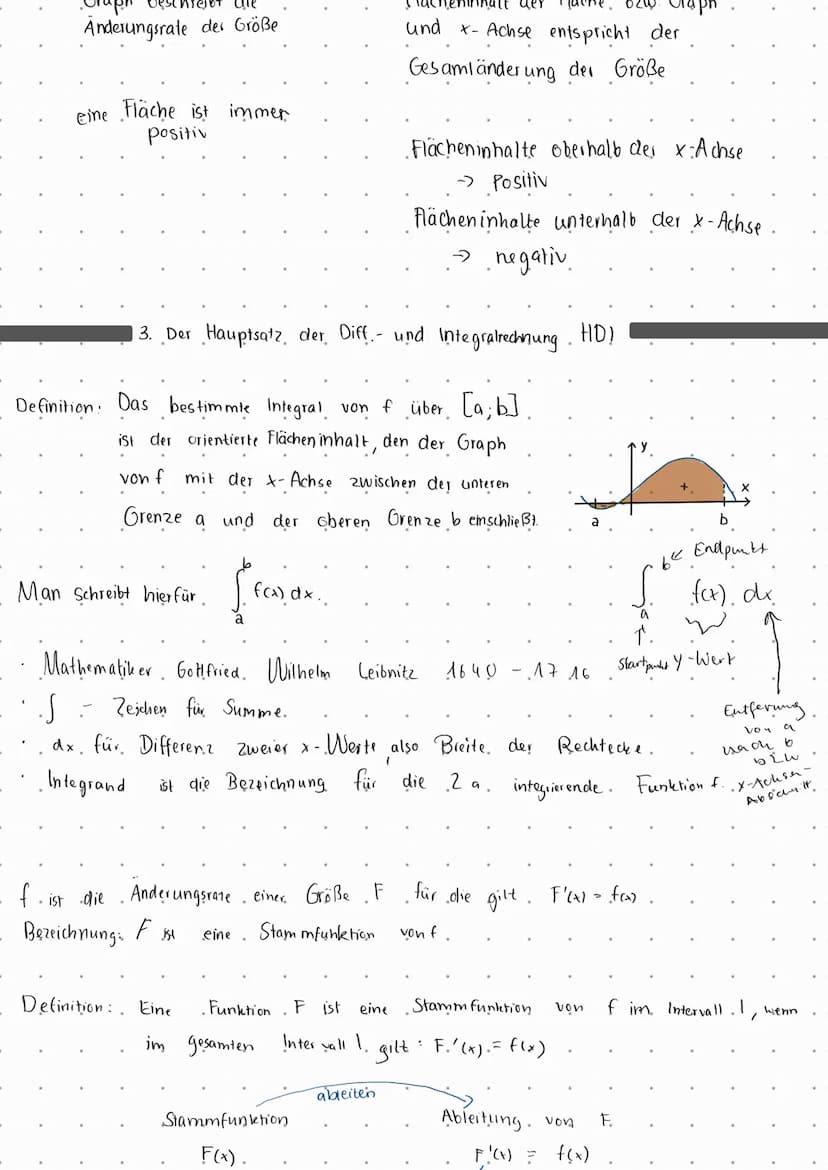 Graph beschreibt die
Änderungsrate der Größe
eine Fläche ist immer
positiv
Flächeninhalt der Fläche. bzw Graph
und x-Achse entspricht der
Gesamtänderung der Größe
Flächeninhalte oberhalb der x-Achse
-> Positiv
Flächeninhalte unterhalb der x-Achse
-> negativ
3. Der Hauptsatz der Diff.- und Integralrechnung HDI
Definition: Das bestimmte Integral von f über [a;b]
ist der orientierte Flächeninhalt, den der Graph
von f mit der x-Achse zwischen der unteren
Grenze a und der oberen Grenze b einschließt.
y
+
x
a
b
Man schreibt hierfür ∫ₐᵇ f(x) dx.
b ← Endpunkt
∫ f(x) dx
a
Startpunkt y-Wert
Entferung
von a
nach b
bzw
x-Achsen-
Abschnitt
· Mathematiker Gottfried Wilhelm Leibnitz 1640 - 1716
· ∫ - Zeichen für Summe
· dx für Differenz zweier x-Werte, also Breite der Rechtecke
· Integrand ist die Bezeichnung für die z a integrierende Funktion f
f ist die Änderungsrate einer Größe F für die gilt F'(x) = f(x)
Bezeichnung: F ist eine Stammfunktion von f.
Definition: Eine Funktion F ist eine Stammfunktion von f im Intervall I, wenn
im gesamten Intervall I gilt: F'(x) = f(x)
ableiten
Stammfunktion Ableitung von F
F(x) F'(x) = f(x)